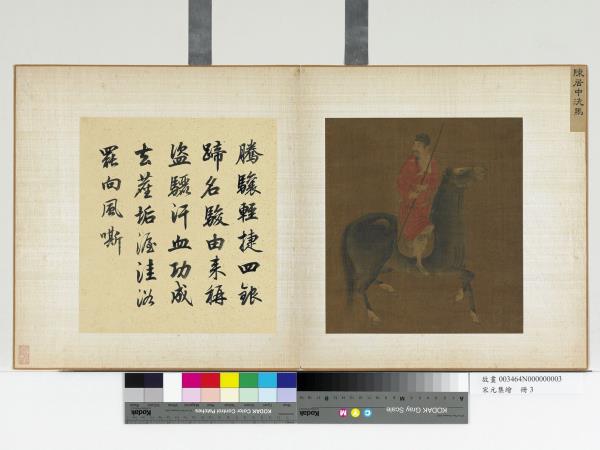 陳居中洗馬
騰驤輕捷四銀
蹄名駿由来稱
盜驪汗血功成
去塵垢渥洼浴
罷向風嘶
KODAK Color Control Patches
KODAK Gray Scale
C
Y
M
Kodak
故畫 003464N000000003
宋元集繪 冊 3